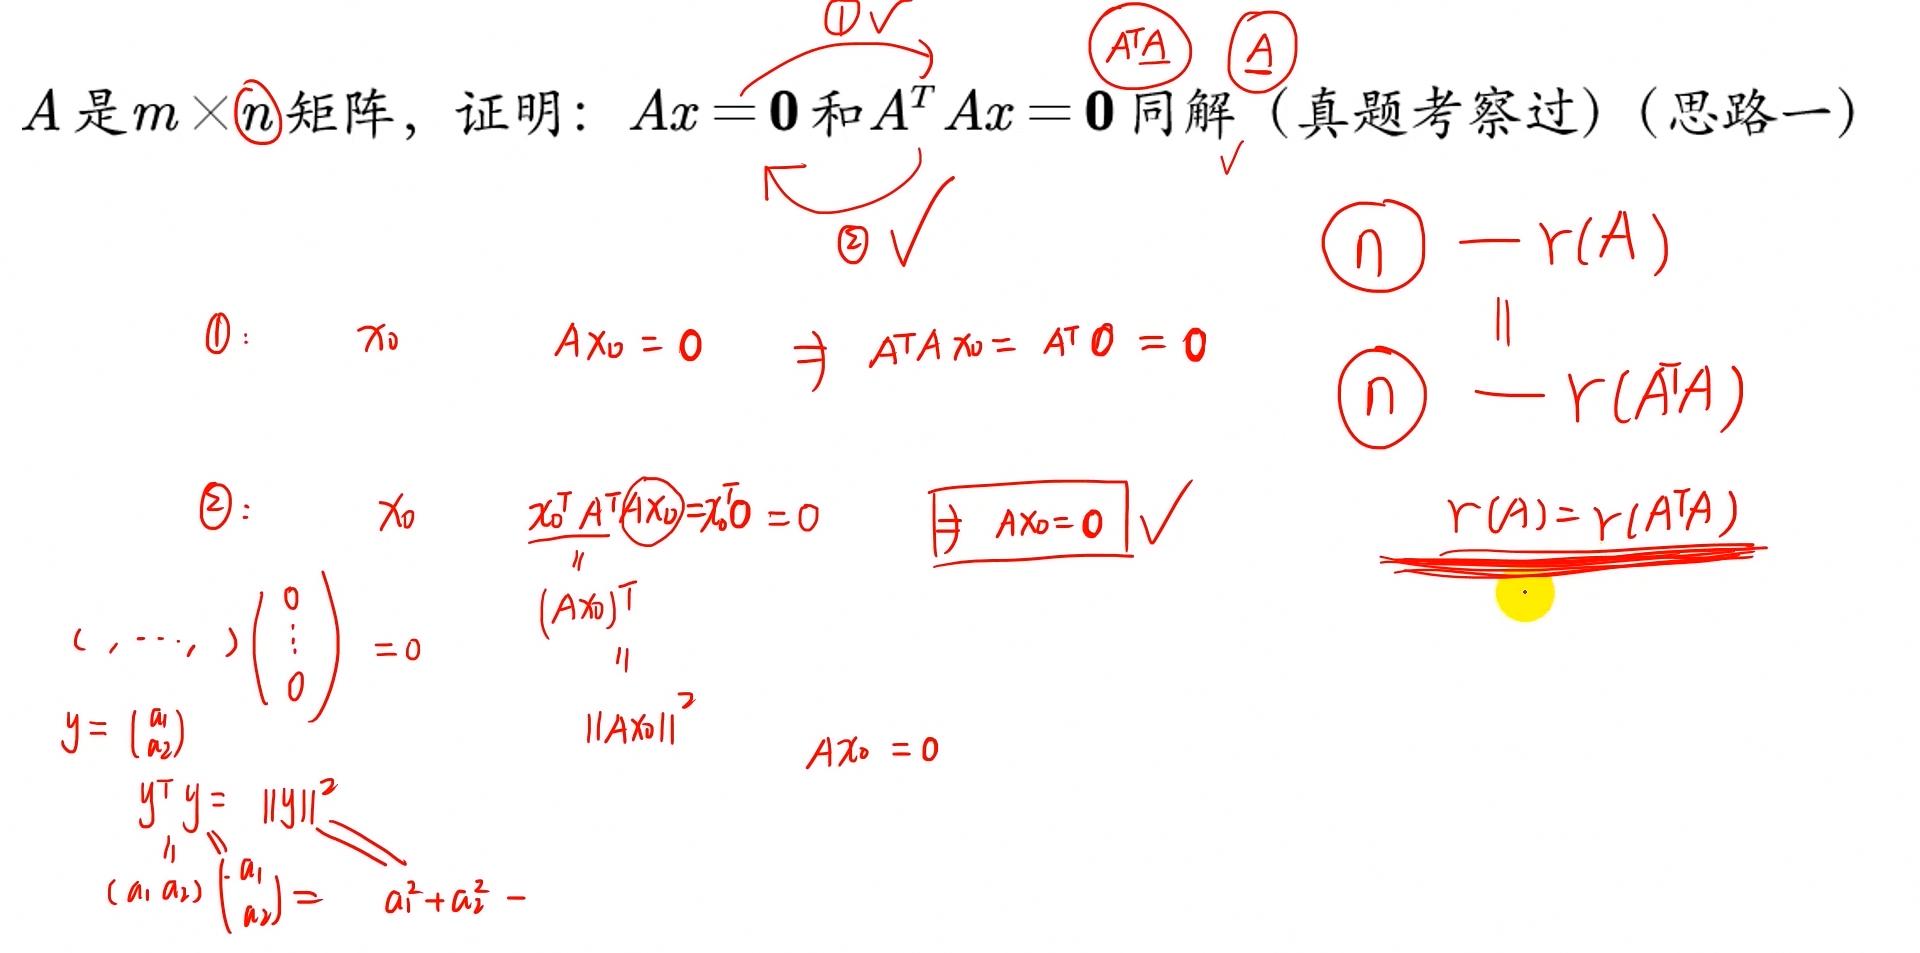 ① ✓
AᵀA A
A是m×n矩阵，证明：Ax=0和AᵀAx=0同解（真题考察过）（思路一）
✓
② ✓
n — r(A)
=
n — r(AᵀA)
r(A)=r(AᵀA)
①: x₀ Ax₀=0 ⇒ AᵀAx₀=Aᵀ0=0
②: x₀ x₀ᵀAᵀAx₀=x₀ᵀ0=0 ⇒ Ax₀=0 ✓
=
(Ax₀)ᵀ
=
||Ax₀||²
Ax₀=0
( , ..., ) (0 ⋮ 0) =0
y=(a₁ a₂)
yᵀy=||y||²
= =
(a₁ a₂)(a₁ a₂)= a₁²+a₂² -